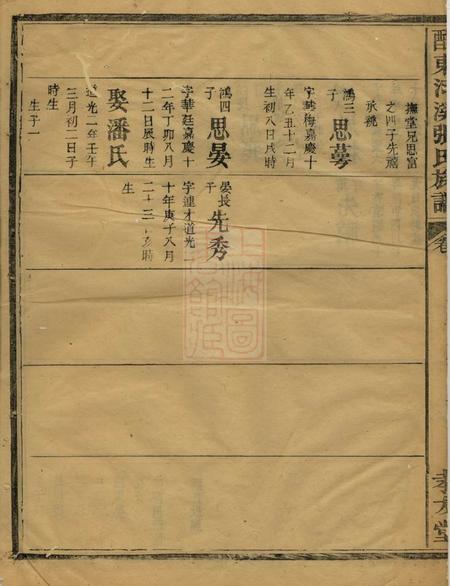 張氏族譜
卷
孝友堂
撫堂兄思富
之四子先禧
承祧
鴻三子
思蕚
字華梅嘉慶十
年乙丑十二月
生初八日戌時
鴻四子
思晏
字華廷嘉慶十
二年丁卯八月
十二日辰時生
娶潘氏
道光二年壬午
三月初二日子
時生
生子一
晏長子
先秀
字連才道光二
十年庚子八月
二十三日亥時
生
上海圖書館藏